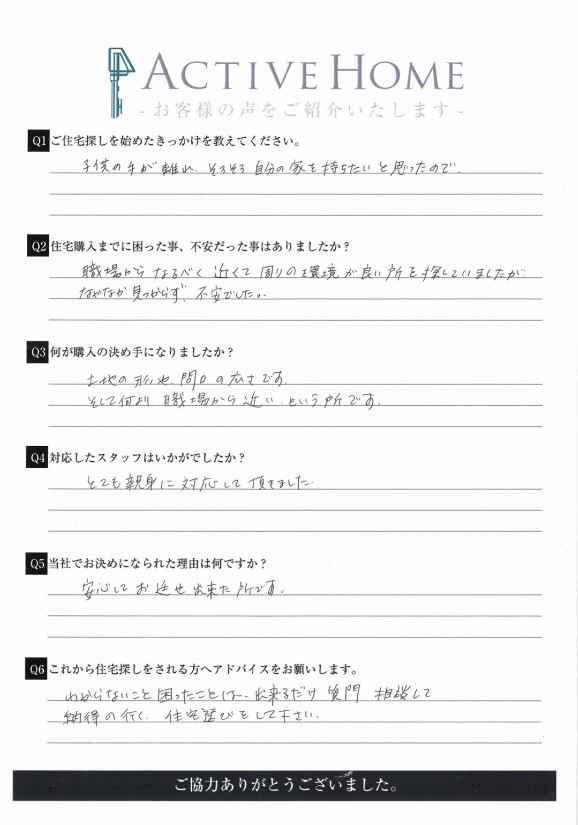 ACTIVE HOME
- お客様の声をご紹介いたします -
Q1 ご住宅探しを始めたきっかけを教えてください。
子供の手が離れ、そろそろ自分の家を持ちたいと思ったので。
Q2 住宅購入までに困った事、不安だった事はありましたか？
職場から なるべく 近くて 周りの環境が良い所を探していましたが
なかなか見つからず、不安でした。
Q3 何が購入の決め手になりましたか？
土地の形や、間口の広さです。
そして何より、職場から近い、という所です。
Q4 対応したスタッフはいかがでしたか？
とても親身に対応して頂きました。
Q5 当社でお決めになられた理由は何ですか？
安心してお任せ出来た所です。
Q6 これから住宅探しをされる方へアドバイスをお願いします。
わからないこと困ったことは、出来るだけ 質問 相談して
納得の行く、住宅選びをして下さい。
ご協力ありがとうございました。